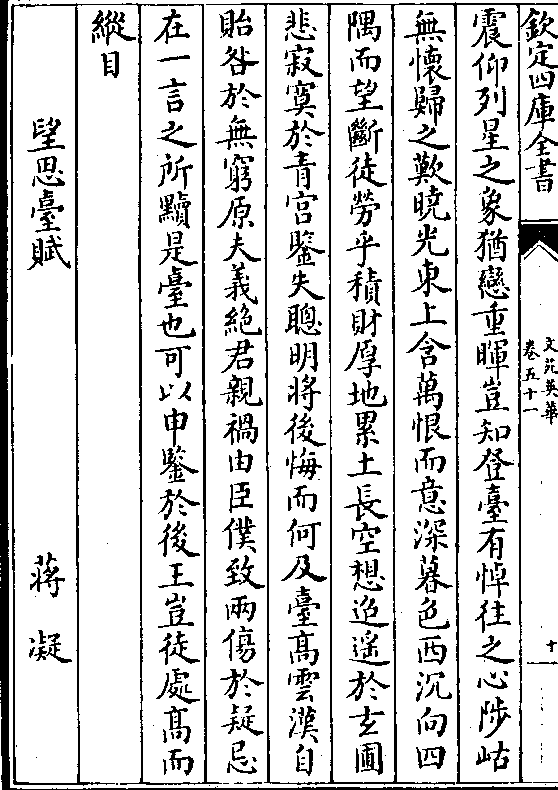 欽定四庫全書
文苑英華
卷五十一
十
震仰列星之象猶戀重暉豈知登臺有悼往之心陟岵
無懷歸之歎曉光東上含萬恨而意深暮色西沉向四
隅而望斷徒勞乎積財厚地累土長空想迢遥於玄圃
悲寂寞於青宮鑒失聰明將後悔而何及臺高雲漢自
貽咎於無窮原夫義絶君親禍由臣僕致兩傷於疑忌
在一言之所黷是臺也可以申鑒於後王豈徒處高而
縱目
望思臺賦 蔣凝